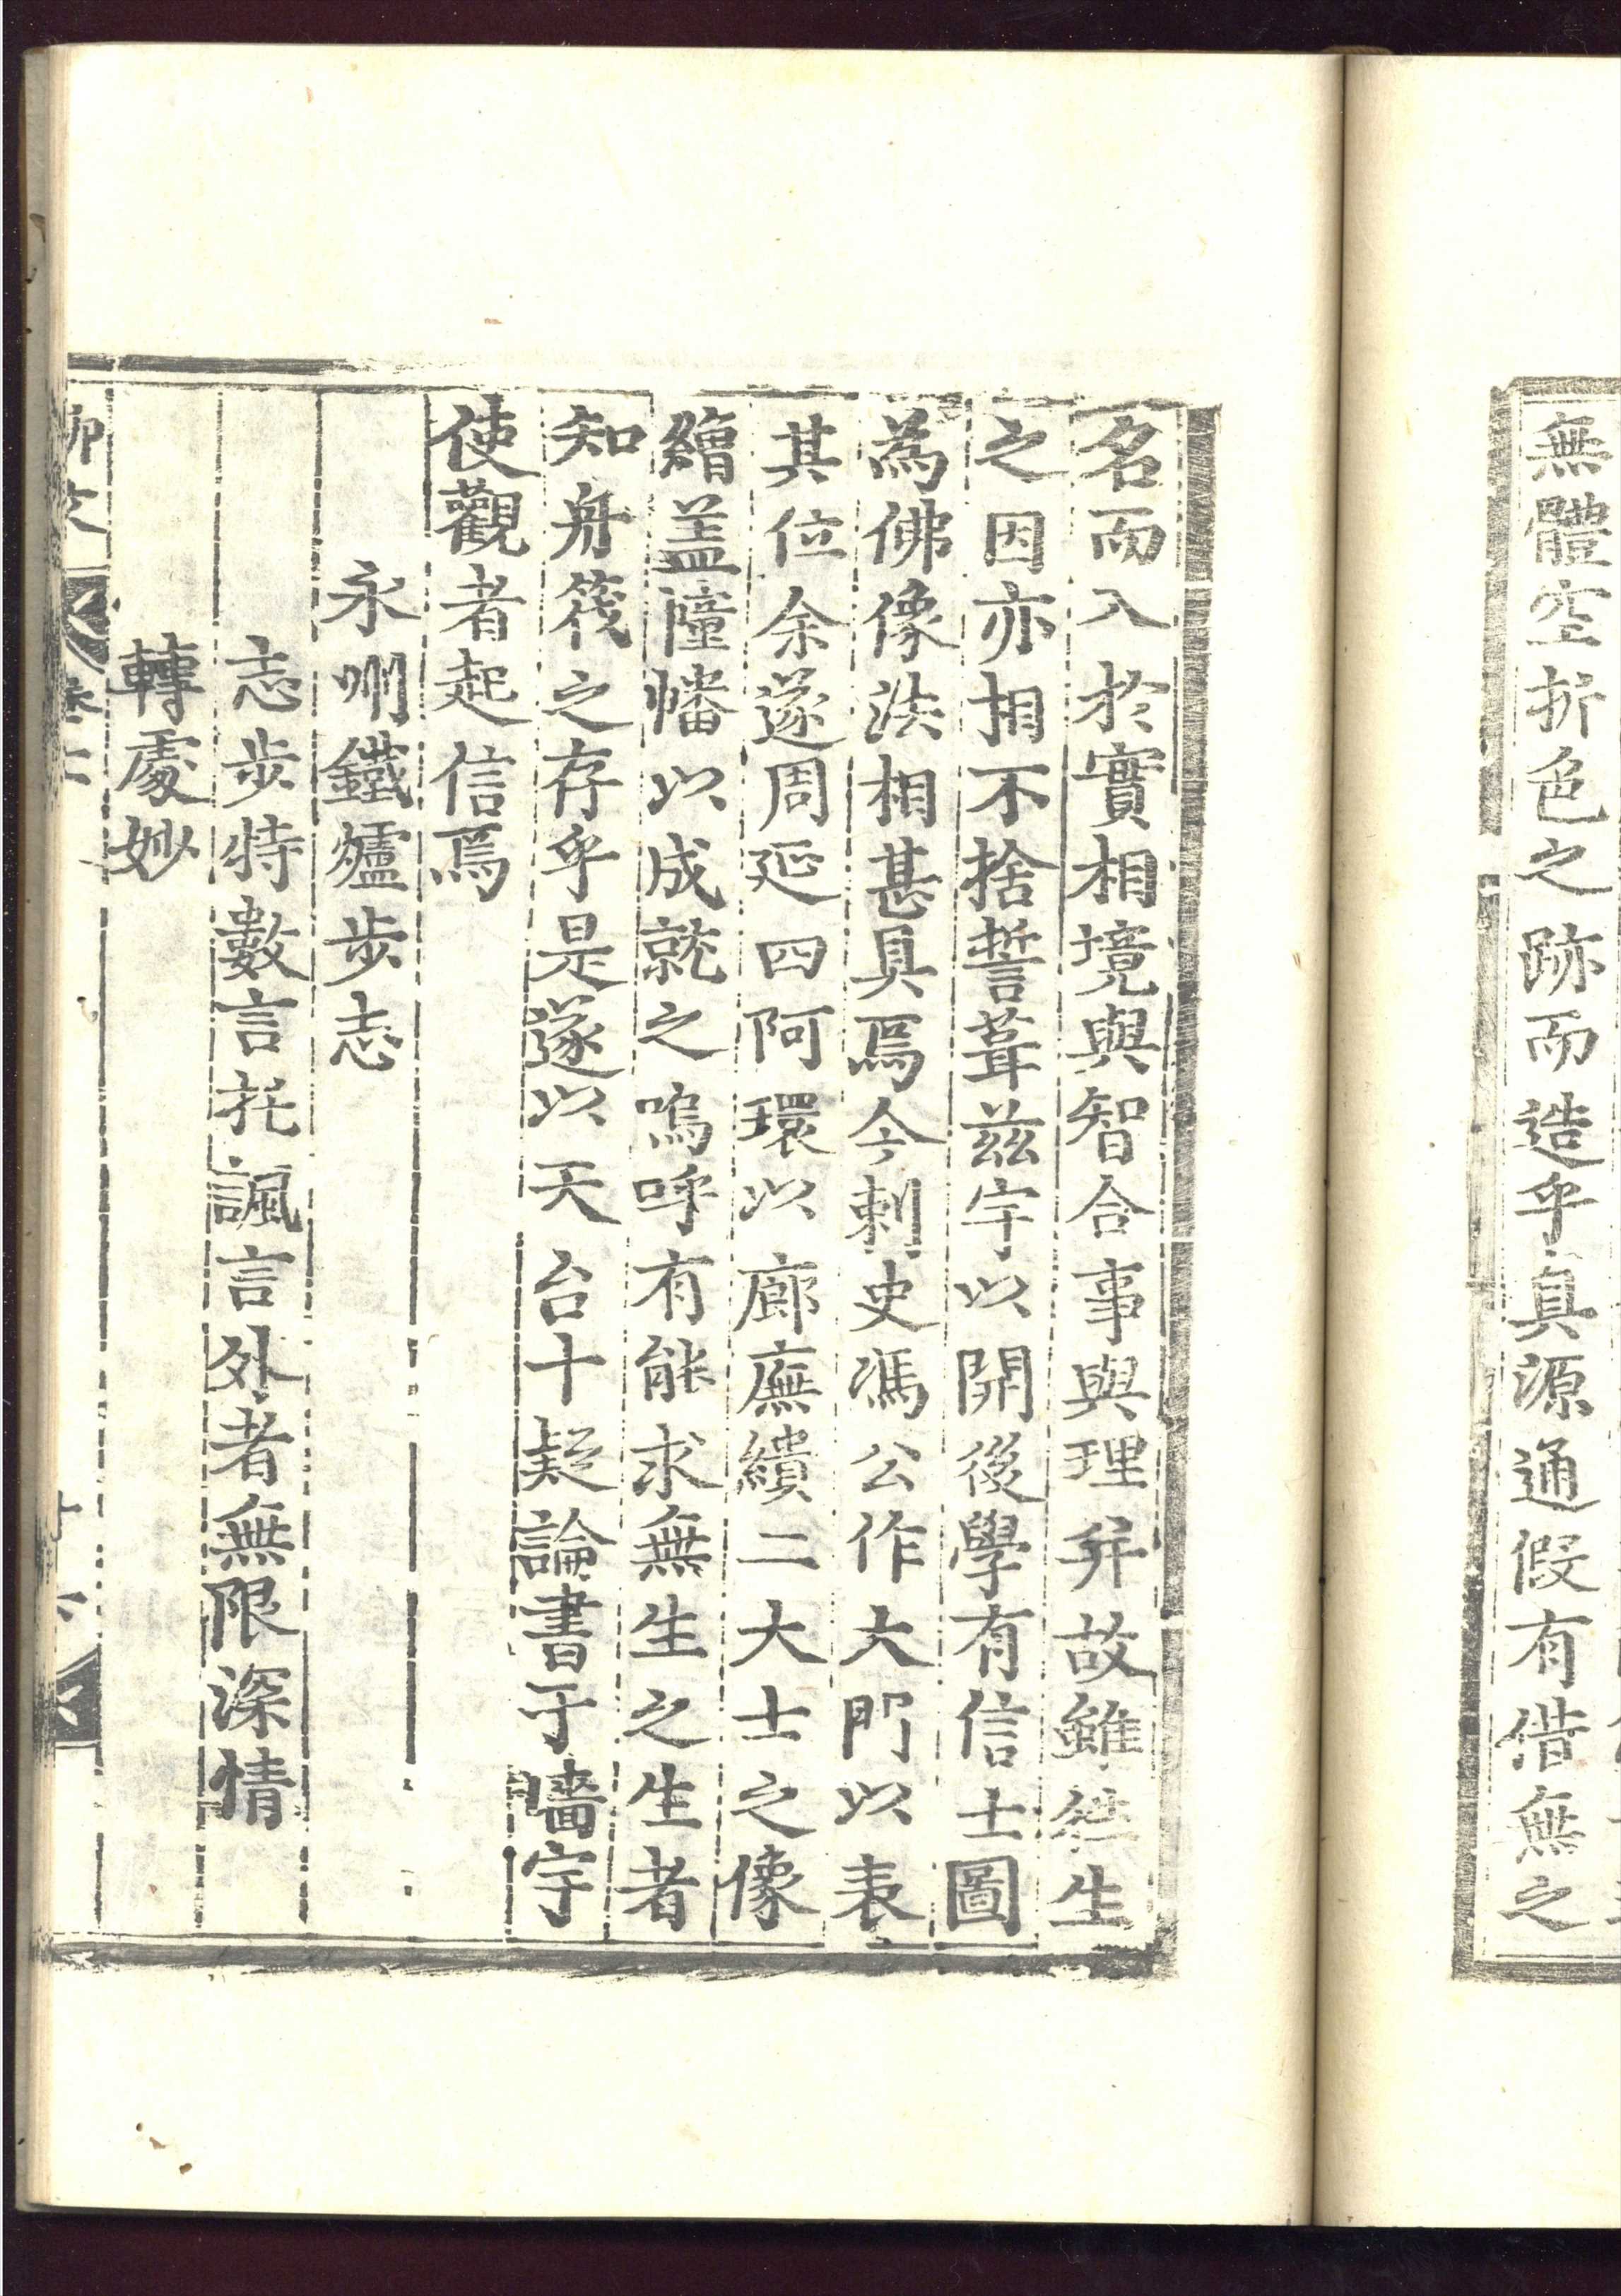 無體空折色之跡而造乎真源通假有借無之
名而入於實相境與智合事與理并故雖徃生
之因亦相不捨誓葺茲宇以開後學有信士圖
為佛像法相甚具焉今刺史馮公作大門以表
其位余遂周延四阿環以廊廡繢二大士之像
繒盖幢幡以成就之嗚呼有能求無生之生者
知舟筏之存乎是遂以天台十疑論書于墻宇
使觀者起信焉
永州鐵爐步志
志步特數言托諷言外者無限深情
轉處妙
柳文